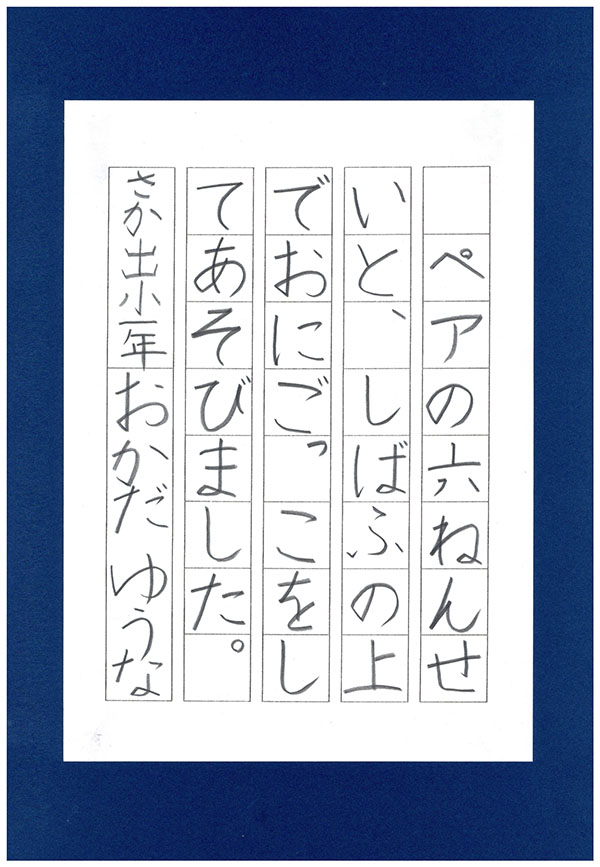 ペアの六ねんせ
いと、しばふの上
でおにごっこをし
てあそびました。
さか出小一年 おかだ ゆうな